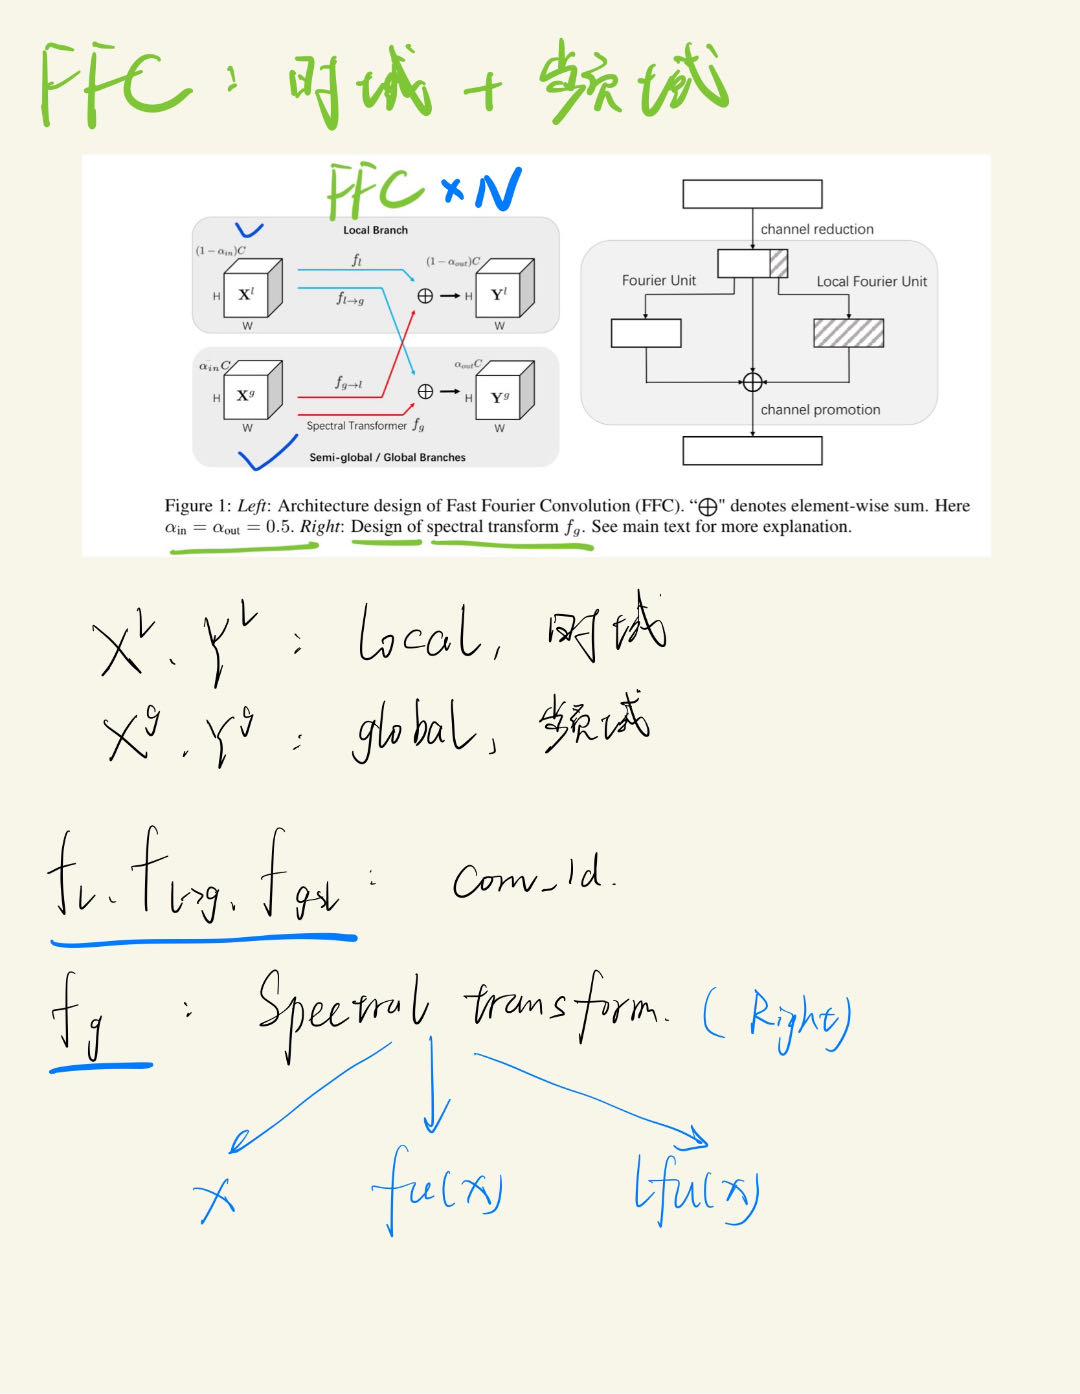 FFC : 时域 + 频域
FFC × N
Local Branch
(1 − α_in)C
f_l
(1 − α_out)C
H
X^l
f_l→g
⊕
H
Y^l
W
W
α_in C
α_out C
H
X^g
f_g→l
⊕
H
Y^g
W
Spectral Transformer f_g
W
Semi-global / Global Branches
channel reduction
Fourier Unit
Local Fourier Unit
channel promotion
Figure 1: Left: Architecture design of Fast Fourier Convolution (FFC). “⊕" denotes element-wise sum. Here
α_in = α_out = 0.5. Right: Design of spectral transform f_g. See main text for more explanation.
X^L、Y^L : Local, 时域
X^g、Y^g : global, 频域
f_L、f_L→g、f_g→L : conv_1d.
f_g : Spectral transform. (Right)
x fu(x) lfu(x)